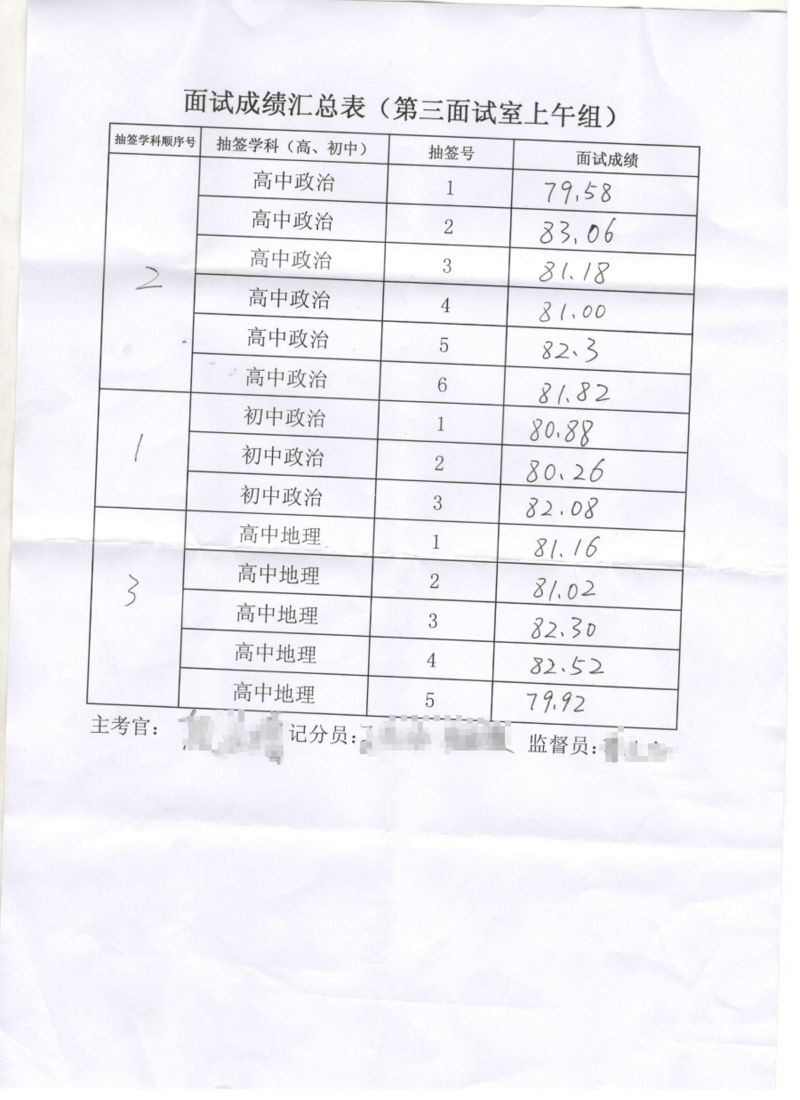 面试成绩汇总表（第三面试室上午组）
抽签学科顺序号 抽签学科（高、初中） 抽签号 面试成绩
2 高中政治 1 79.58
高中政治 2 83.06
高中政治 3 81.18
高中政治 4 81.00
高中政治 5 82.3
高中政治 6 81.82
1 初中政治 1 80.88
初中政治 2 80.26
初中政治 3 82.08
3 高中地理 1 81.16
高中地理 2 81.02
高中地理 3 82.30
高中地理 4 82.52
高中地理 5 79.92
主考官： 记分员： 监督员：